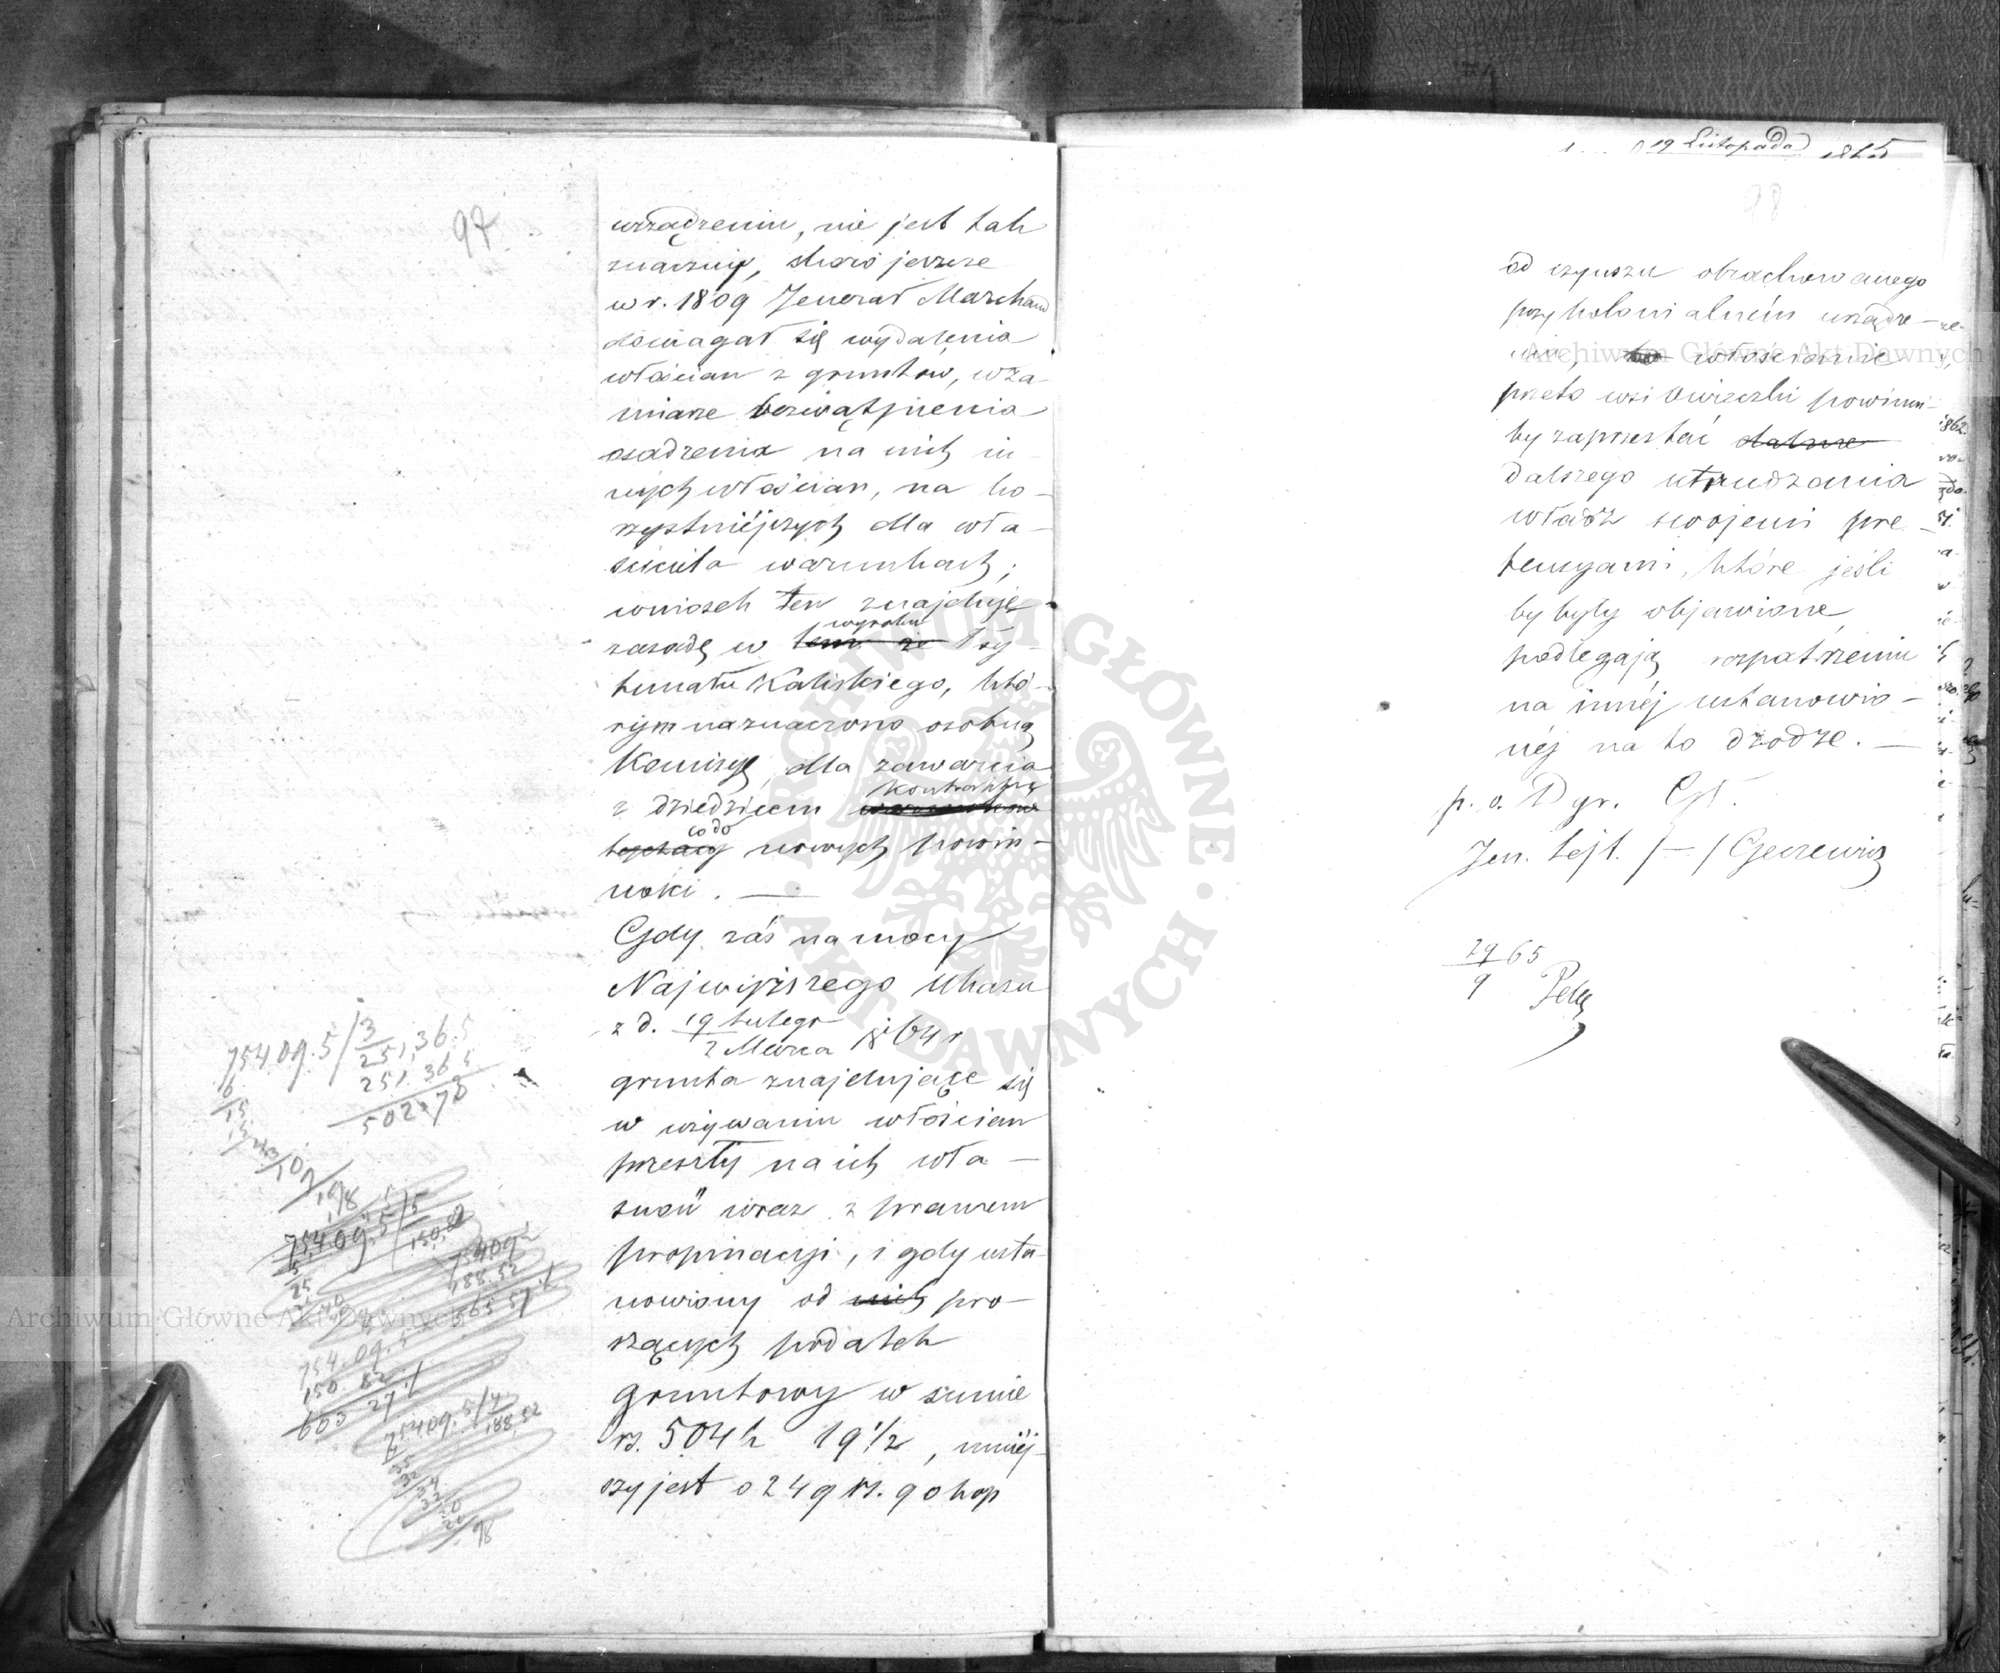 97
urządzeniu, nie jest tak
znaczny, skoro jeszcze
w r. 1809 Jenerał Marchand
domagał się wydalenia
włościan z gruntów, w za-
miarze bezwątpienia
osadzenia na nich in-
nych włościan, na ko-
rzystniéjszych dla wła-
ściciela warunkach;
wniosek ten znajduje
zasadę w tem że wyroku Try-
bunału Kaliskiego, któ-
rym naznaczono osobną
Komisyę dla zawarcia
z dziedzicem kontraktu
co do nowych powin-
ności. —
Gdy zaś na mocy
Najwyższego Ukazu
z d. 19 Lutego / 2 Marca 1864 r
grunta znajdujące się
w używaniu włościan
przeszły na ich wła-
sność wraz z prawem
propinacyi, i gdy usta-
nowiony od nich pro-
szących podatek
gruntowy w sumie
rs. 504 k 19 1/2, mniéj-
szy jest o 249 rs. 90 kop
75409.5/3
251,36.5
251.36.5
502.78
75409.5/5
150.82
75409
188.52
565 57
754.09.5
150.82
603 27
75409.5/4
188,52
98
19 Listopada 1865
98
od czynszu obrachowanego
przy kolonialném urządze-
niu, włościanie
przeto wsi Owieczki powinni-
by zaprzestać dalsze
dalszego utrudzania
władz swojemi pre-
tensyami, które jeśli
by były objawione
podlegają rozpatrzeniu
na innéj ustanowio-
néj na to drodze. —
p. o. Dyr. Gł.
Jen. Lejt. /—/ Gecewicz
29/9 65
Archiwum Główne Akt Dawnych
Archiwum Główne Akt Dawnych
ARCHIWUM GŁÓWNE · AKT DAWNYCH ·